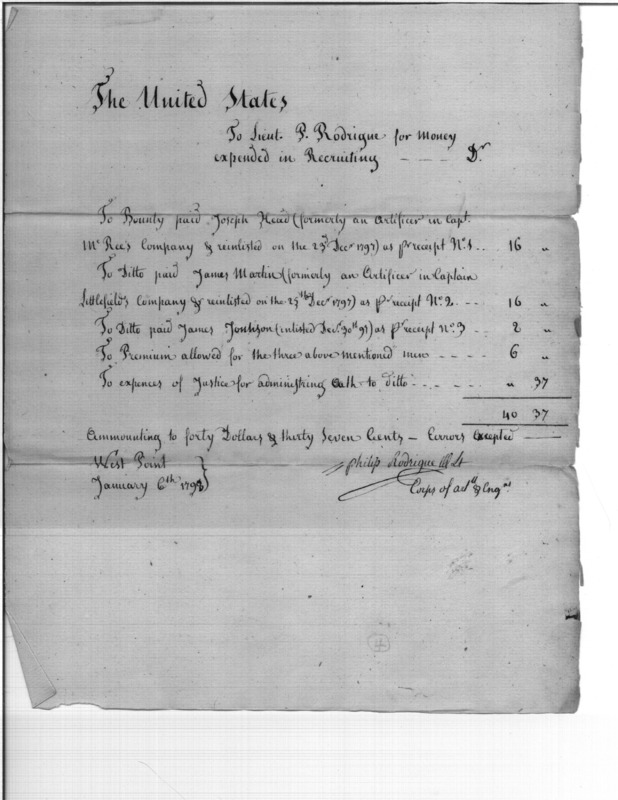 The United States
To Lieut. P. Rodrigue for Money
expended in Recruiting - - - Dr
To Bounty paid Joseph Head (formerly an Artificer in Capt.
Mc Ree's Company & reinlisted on the 23d Decr 1797) as pr receipt No. 1 - - 16 "
To Ditto paid James Martin (formerly an Artificer in Captain
Littlefield's Company & reinlisted on the 25th Decr 1797) as pr receipt No 2 - - - 16 "
To Ditto paid James (inlisted Decr 30th 97) as pr receipt No 3 - - 2 "
To Premium allowed for the three above mentioned men - - - - 6 "
To expences of Justice for administring Oath to ditto - - - - - " 37
40 37
Ammounting to forty Dollars & thirty Seven Cents — Errors Excepted
West Point }
January 6th 1798 }
Philip Rodrigue Lt
Corps of & Engrs
4